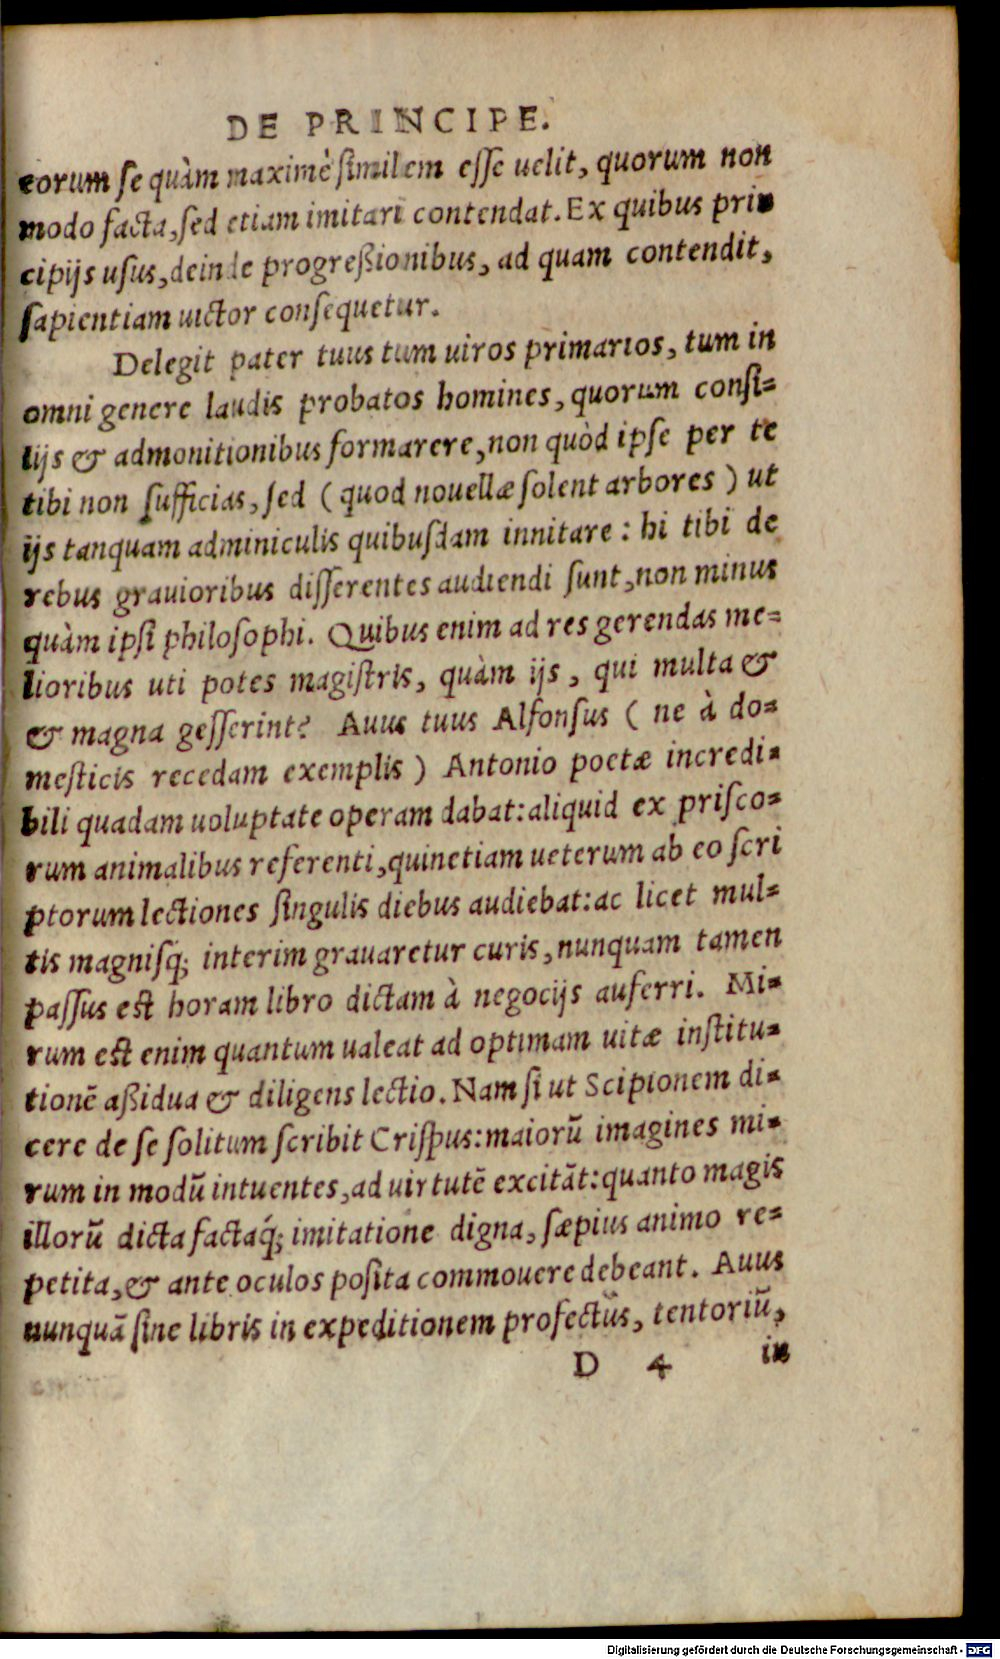 DE PRINCIPE.
eorum se quàm maximè similem esse uelit, quorum non
modo facta, sed etiam imitari contendat. Ex quibus prin
cipijs usus, deinde progreßionibus, ad quam contendit,
sapientiam uictor consequetur.
Delegit pater tuus tum uiros primarios, tum in
omni genere laudis probatos homines, quorum consi=
lijs & admonitionibus formarere, non quòd ipse per te
tibi non sufficias, sed ( quod nouellæ solent arbores ) ut
ijs tanquam adminiculis quibusdam innitare : hi tibi de
rebus grauioribus disserentes audiendi sunt, non minus
quàm ipsi philosophi. Quibus enim ad res gerendas me=
lioribus uti potes magistris, quàm ijs, qui multa &
& magna gesserint? Auus tuus Alfonsus ( ne à do=
mesticis recedam exemplis ) Antonio poetæ incredi=
bili quadam uoluptate operam dabat: aliquid ex prisco=
rum animalibus referenti, quinetiam ueterum ab eo scri
ptorum lectiones singulis diebus audiebat: ac licet mul=
tis magnisq́; interim grauaretur curis, nunquam tamen
passus est horam libro dictam à negocijs auferri. Mi=
rum est enim quantum ualeat ad optimam uitæ institu=
tionē aßidua & diligens lectio. Nam si ut Scipionem di=
cere de se solitum scribit Crispus: maiorū imagines mi=
rum in modū intuentes, ad uirtutē excitāt: quanto magis
illorū dicta factaq́; imitatione digna, sæpius animo re=
petita, & ante oculos posita commouere debeant. Auus
nunquā sine libris in expeditionem profectus, tentoriū,
D 4 in
Digitalisierung gefördert durch die Deutsche Forschungsgemeinschaft - DFG